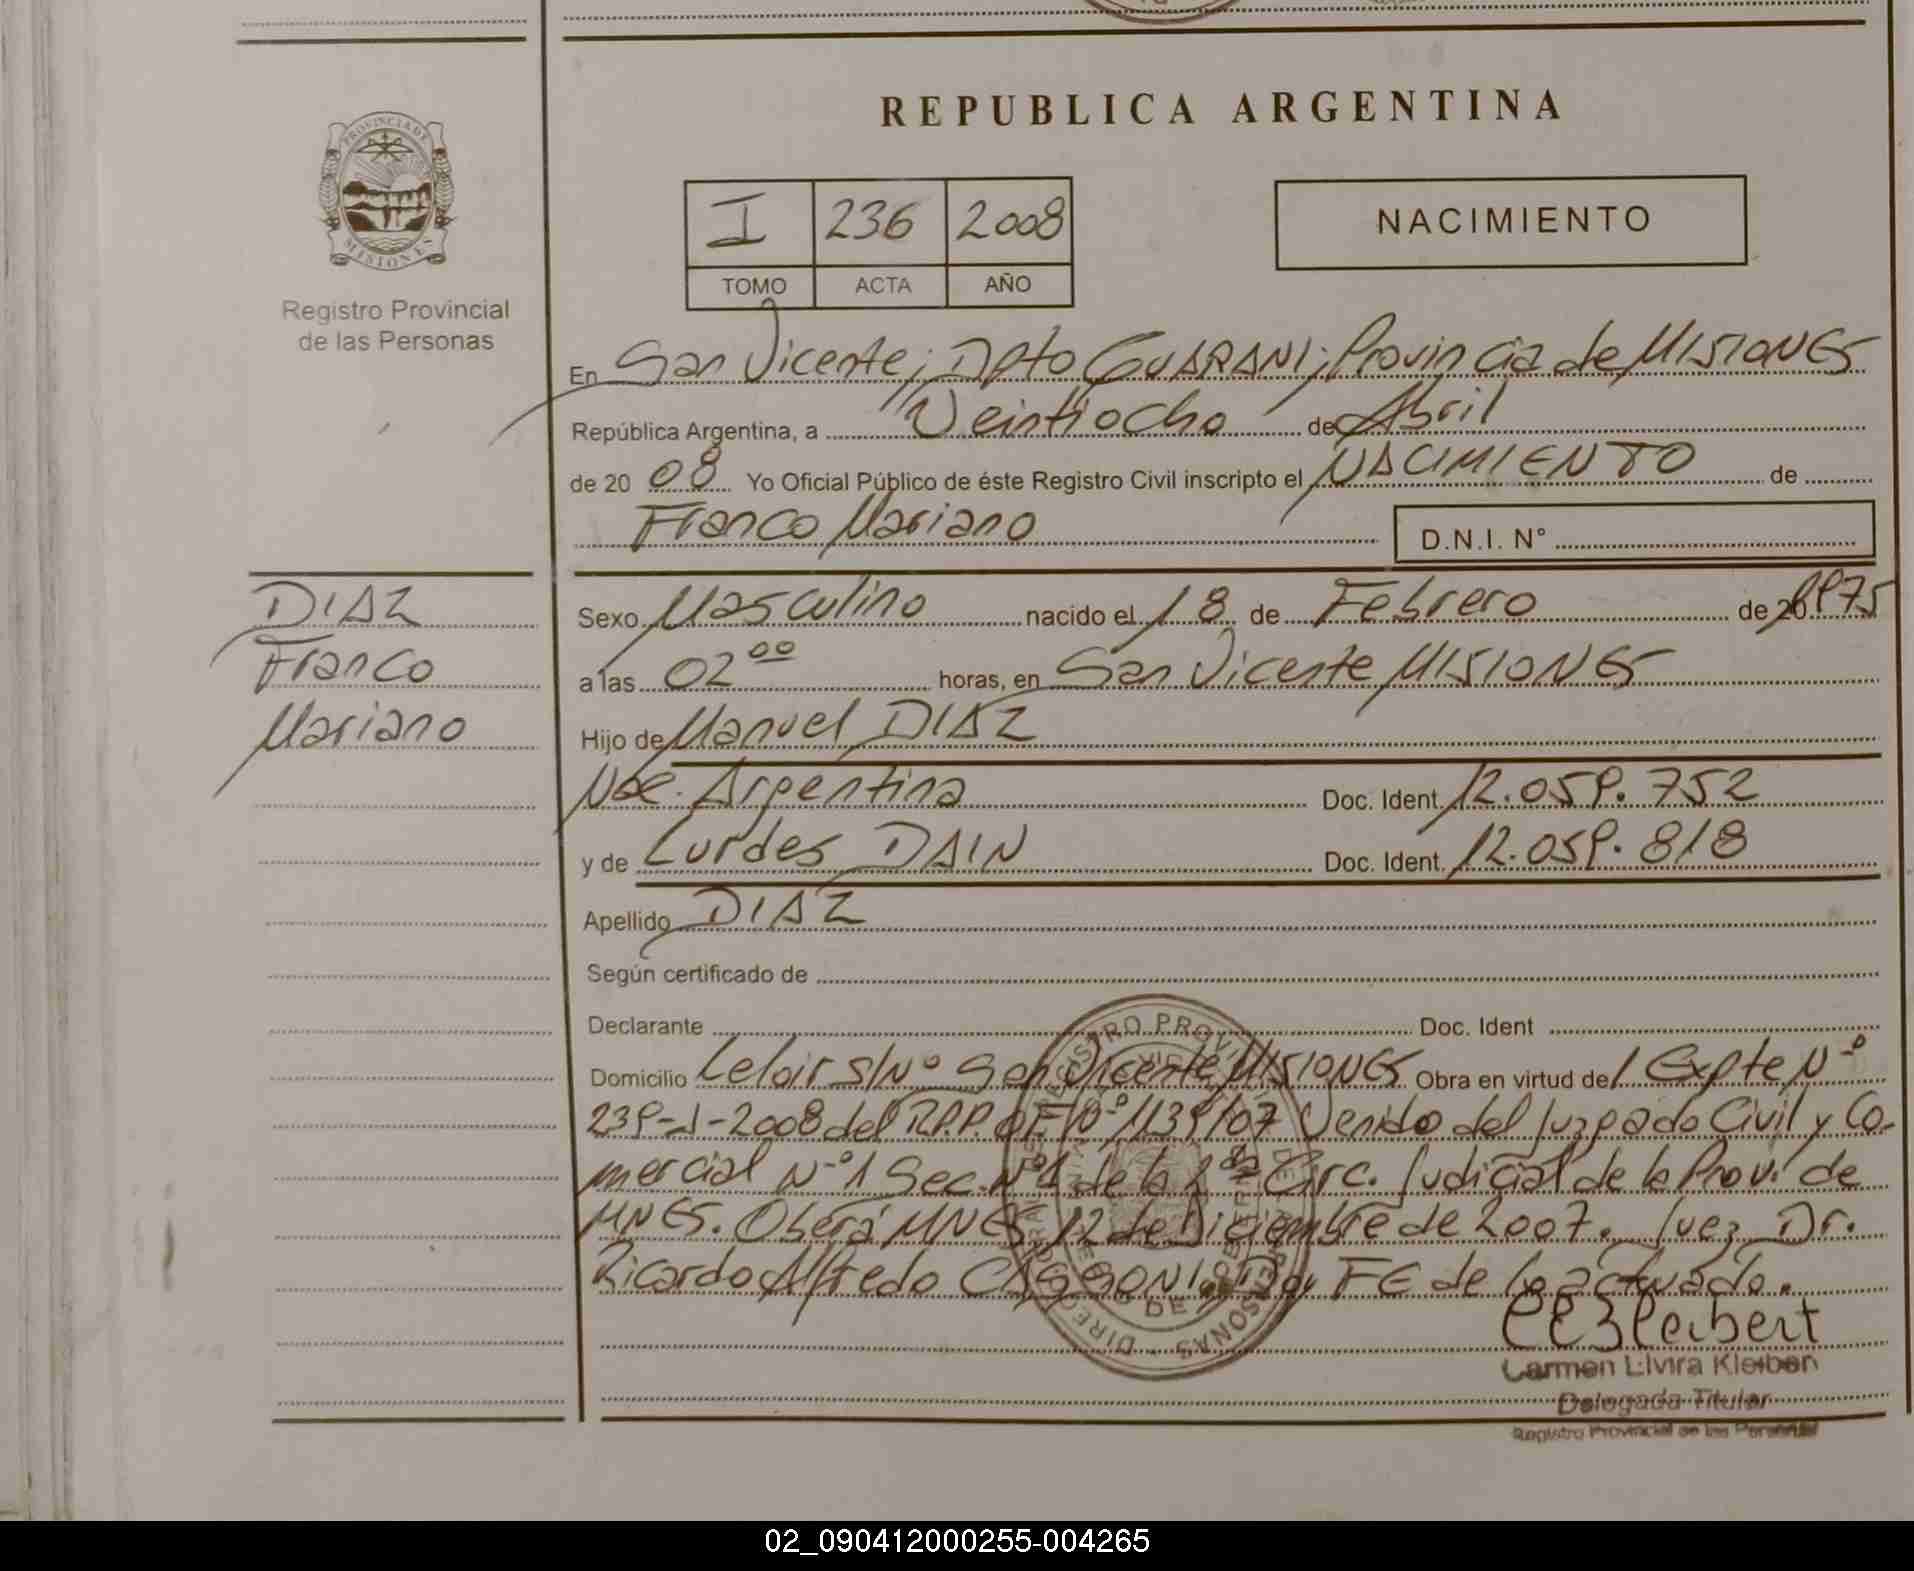 REPUBLICA ARGENTINA
PROVINCIA DE
MISIONES
Registro Provincial
de las Personas
I 236 2008
TOMO ACTA AÑO
NACIMIENTO
En San Vicente; Dpto GUARANI; Provincia de MISIONES
República Argentina, a Veintiocho de Abril
de 20 08 Yo Oficial Público de éste Registro Civil inscripto el NACIMIENTO de
Franco Mariano
D.N.I. N°
DIAZ
Franco
Mariano
Sexo Masculino nacido el 18 de Febrero de 20 1975
a las 02 00 horas, en San Vicente MISIONES
Hijo de Manuel DIAZ
Nac. Argentina Doc. Ident. 12.059.752
y de Lurdes DAIN Doc. Ident. 12.059.818
Apellido DIAZ
Según certificado de
Declarante Doc. Ident
Domicilio Leloir S/Nº San Vicente MISIONES Obra en virtud del Expte Nº
239-J-2008 del R.P.P. OF. Nº 1139/07 Venido del Juzgado Civil y Co-
mercial Nº 1 Sec. Nº 1 de la 2da Circ. Judicial de la Prov. de
MNES. Oberá MNES, 12 de Diciembre de 2007. Juez Dr.
Ricardo Alfredo Doy FE de lo actuado.
Carmen Elvira Kleibert
Delegada Titular
Registro Provincial de las Personas
02_090412000255-004265